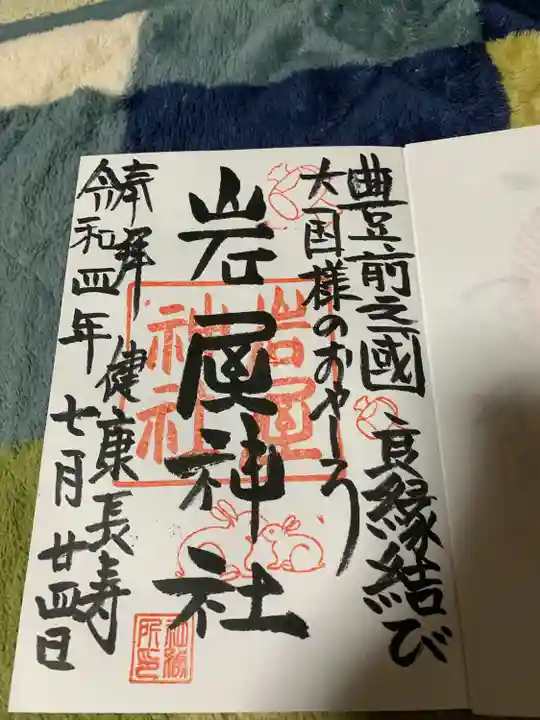 豊前之國 良縁結び
大国様のおやしろ
岩屋神社
岩屋
神社
奉拝 健康長寿
令和四年 七月廿四日
社務
所印